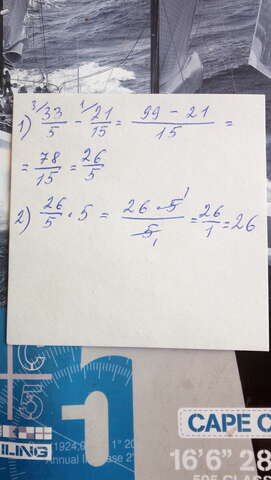 1) ³/33/5 - ¹/21/15 = 99 - 21/15 =
= 78/15 = 26/5
2) 26/5 · 5 = 26 · 5¹/5₁ = 26/1 = 26
C
5
1
ILING
1924,
1° 20
Annual
2"
CAPE C
16'6" 28
505 CLASS